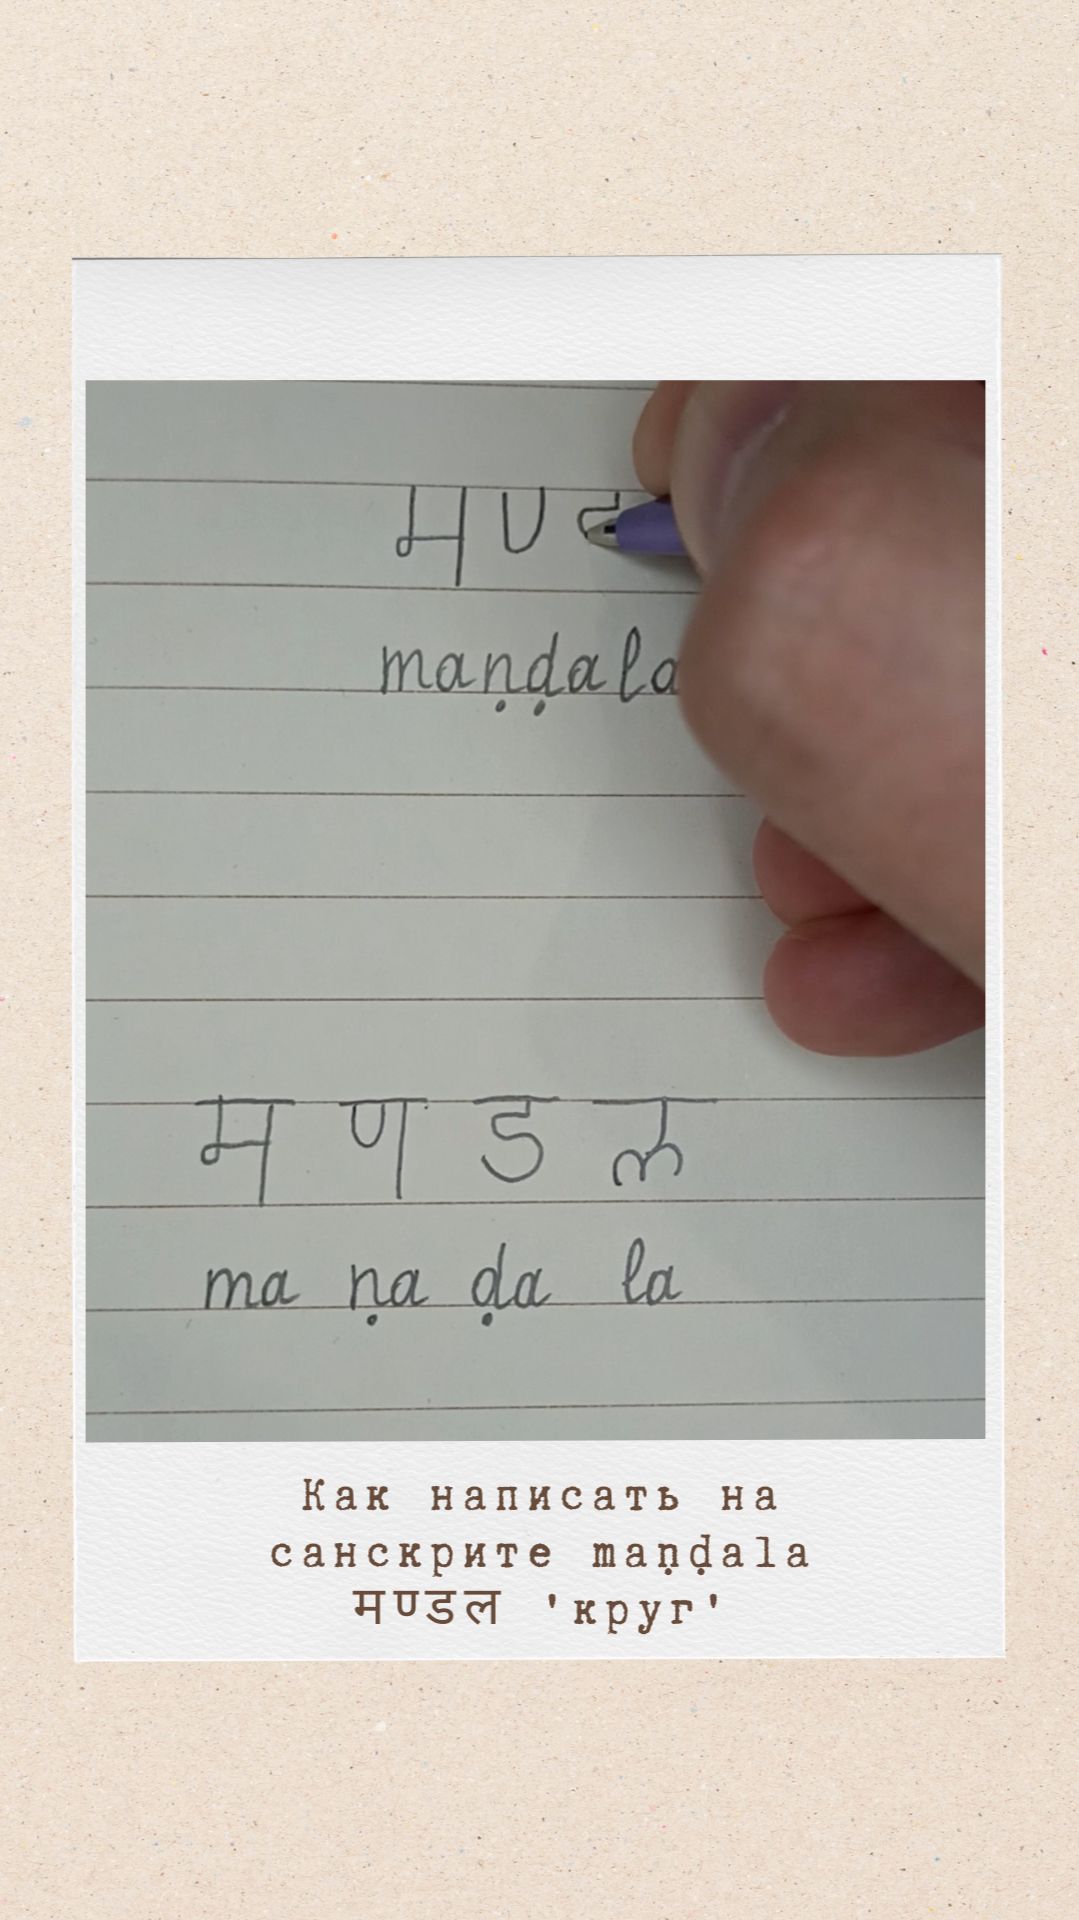 म ण्
maṇḍala
म ण ड ल
ma ṇa ḍa la
Как написать на
санскрите maṇḍala
मण्डल 'круг'